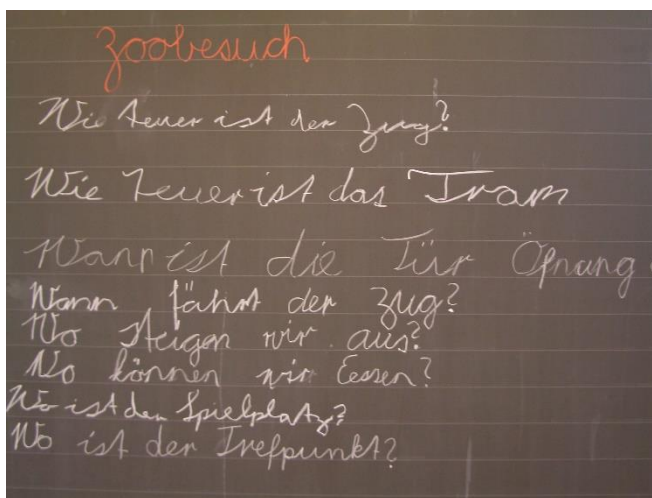 Zoobesuch
Wie teuer ist der Zug?
Wie teuer ist das Tram
Wann ist die Tür Öfnung
Wann fährt der Zug?
Wo steigen wir aus?
Wo können wir Eessen?
Wo ist der Spielplatz?
Wo ist der Trefpunkt?